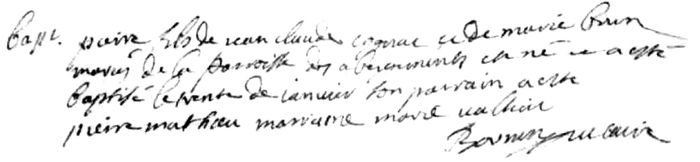 bapt. pierre fils de jean claude cognac et de marie brun
mariés de la parroisse des abergements est né et a esté
baptisé le trente de janvier son parrain a esté
pierre mathieu marraine marie
vicaire